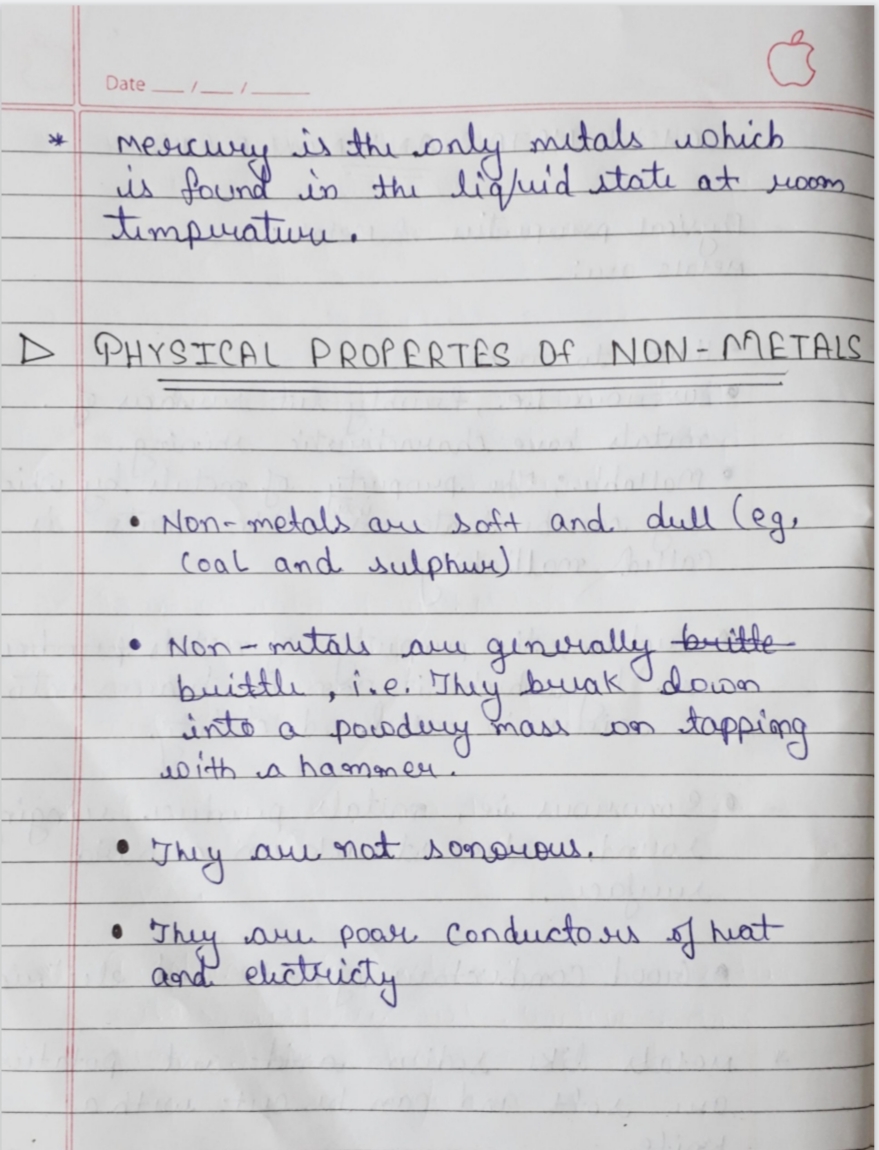 Date __/__/____
* Mercury is the only metals which
is found in the liquid state at room
temperature.
▷ PHYSICAL PROPERTES Of NON-METALS
• Non-metals are soft and dull (eg,
Coal and sulphur)
• Non-metals are generally britte
brittle, i.e. They break down
into a powdery mass on tapping
with a hammer.
• They are not sonorous.
• They are poar conductors of heat
and electricty